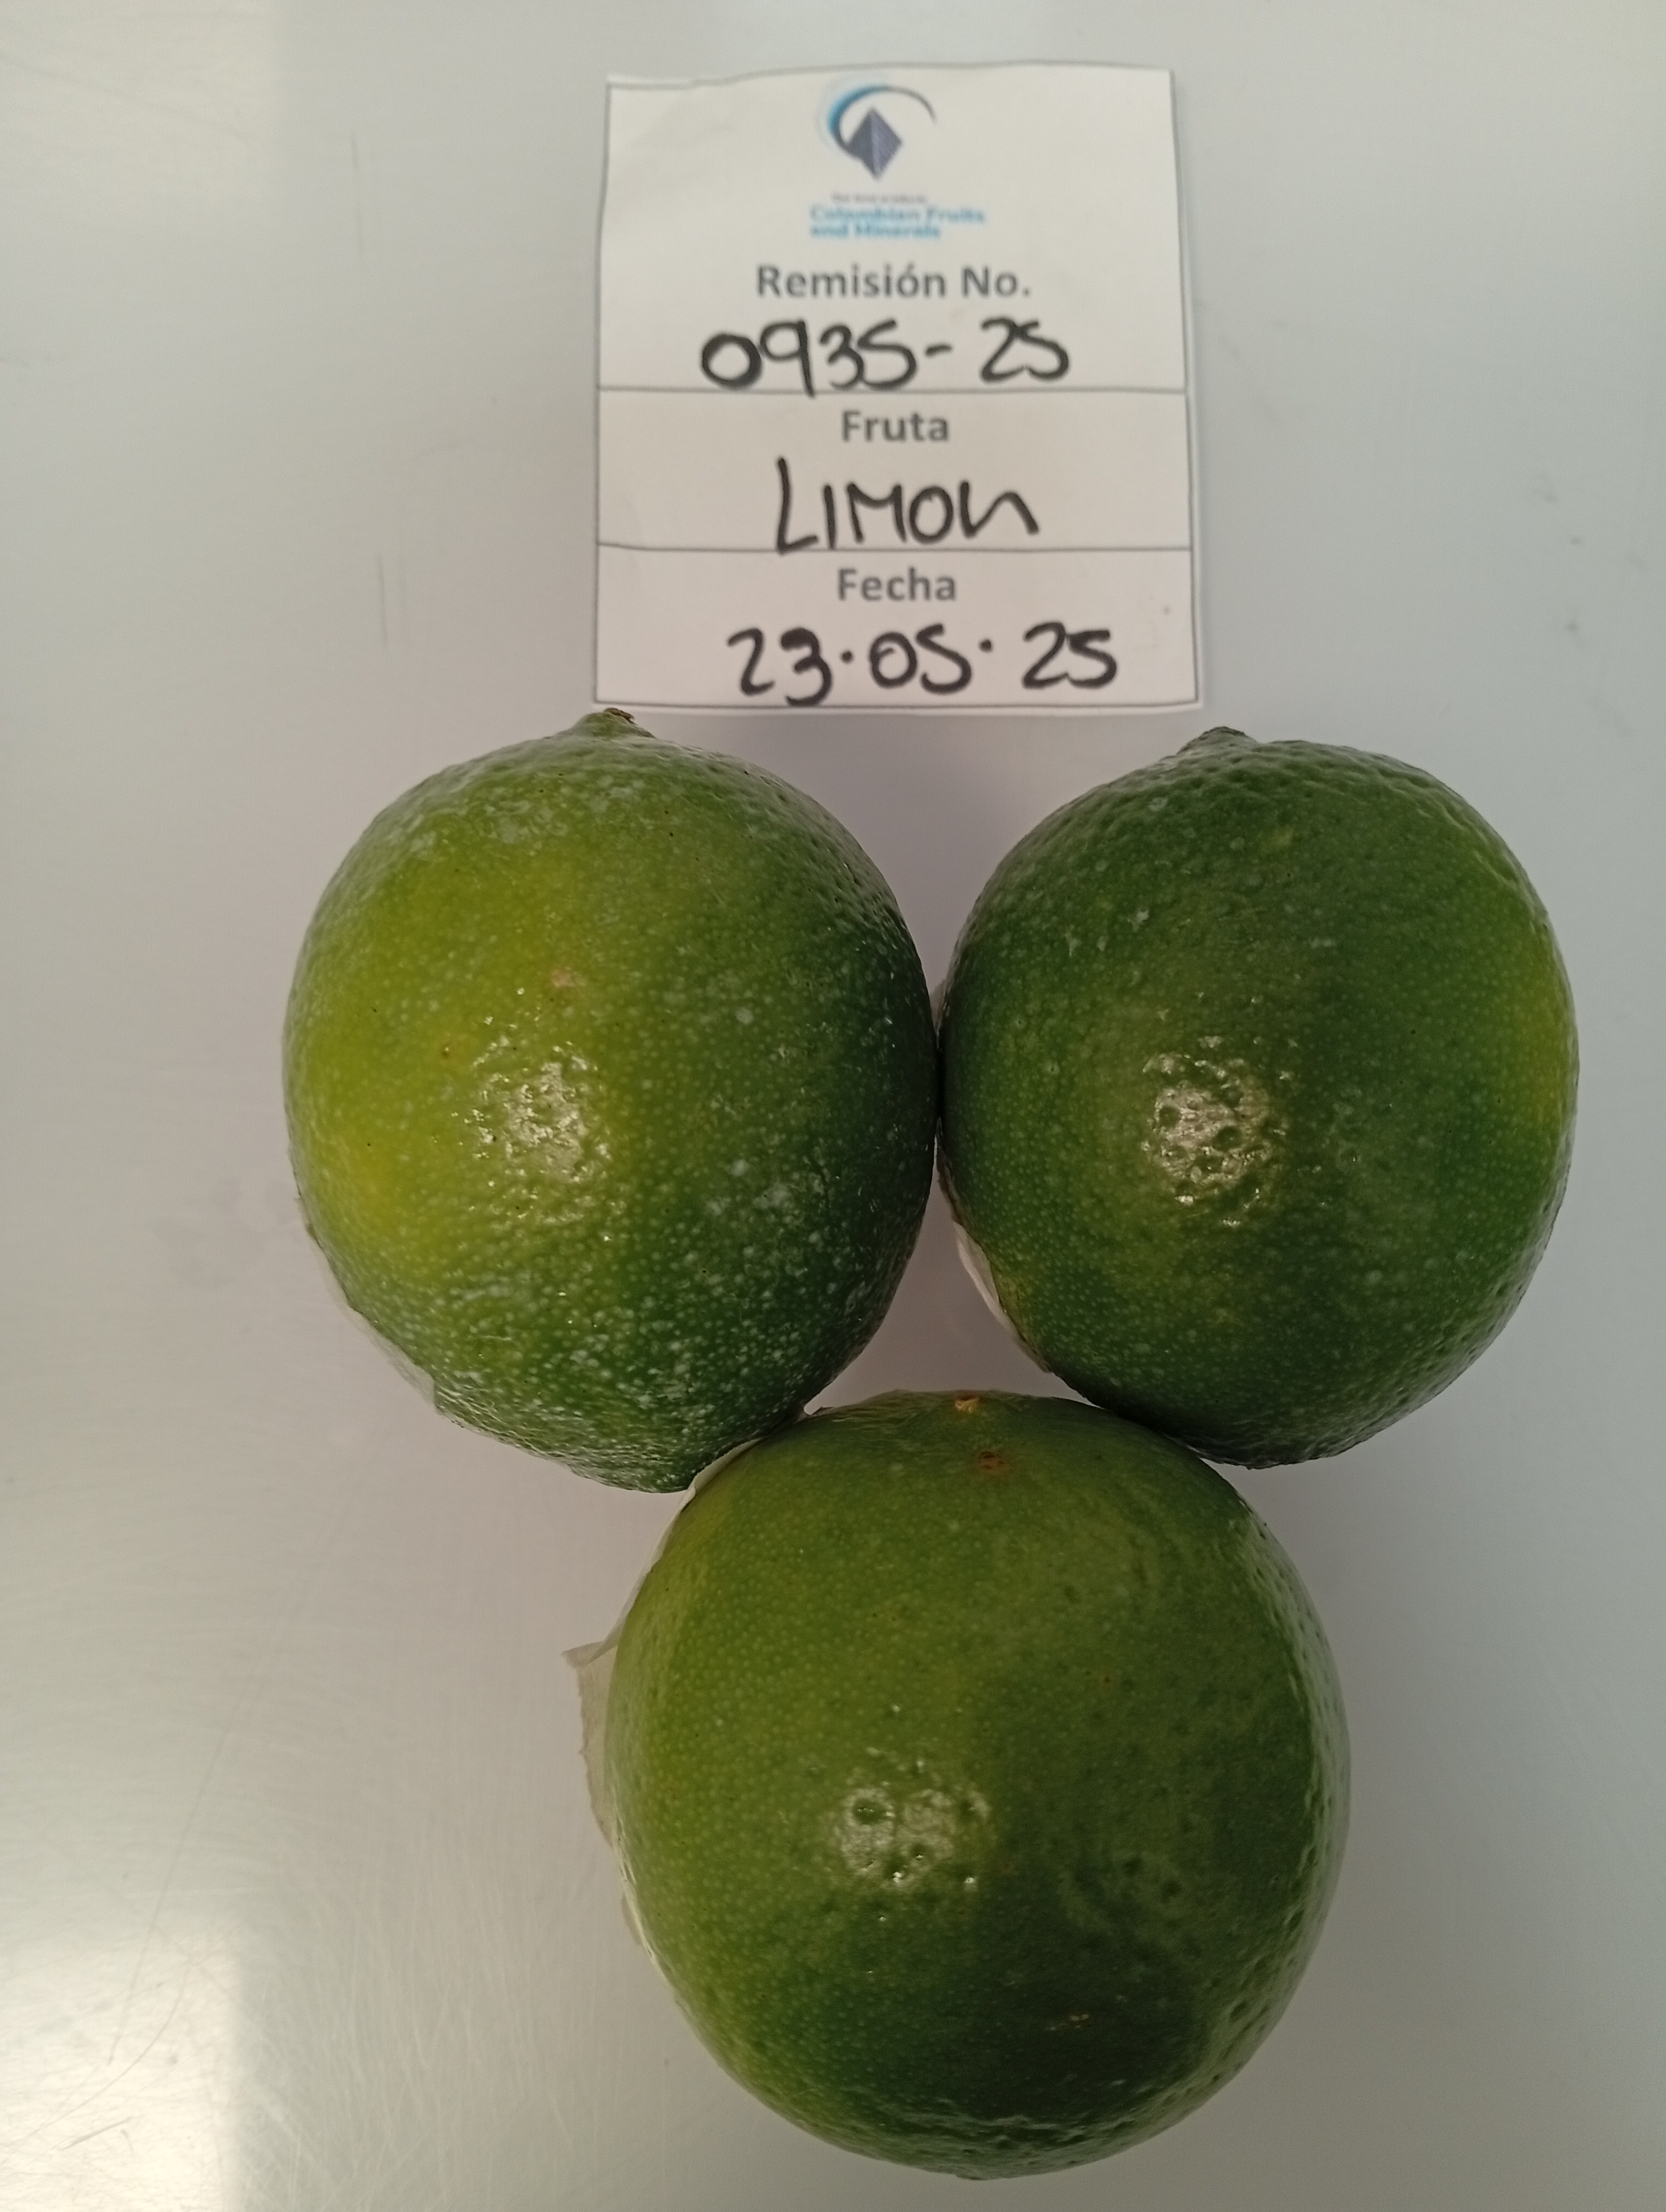 Colombian Fruits
and Minerals
Remisión No.
0935-25
Fruta
LIMON
Fecha
23.05.25